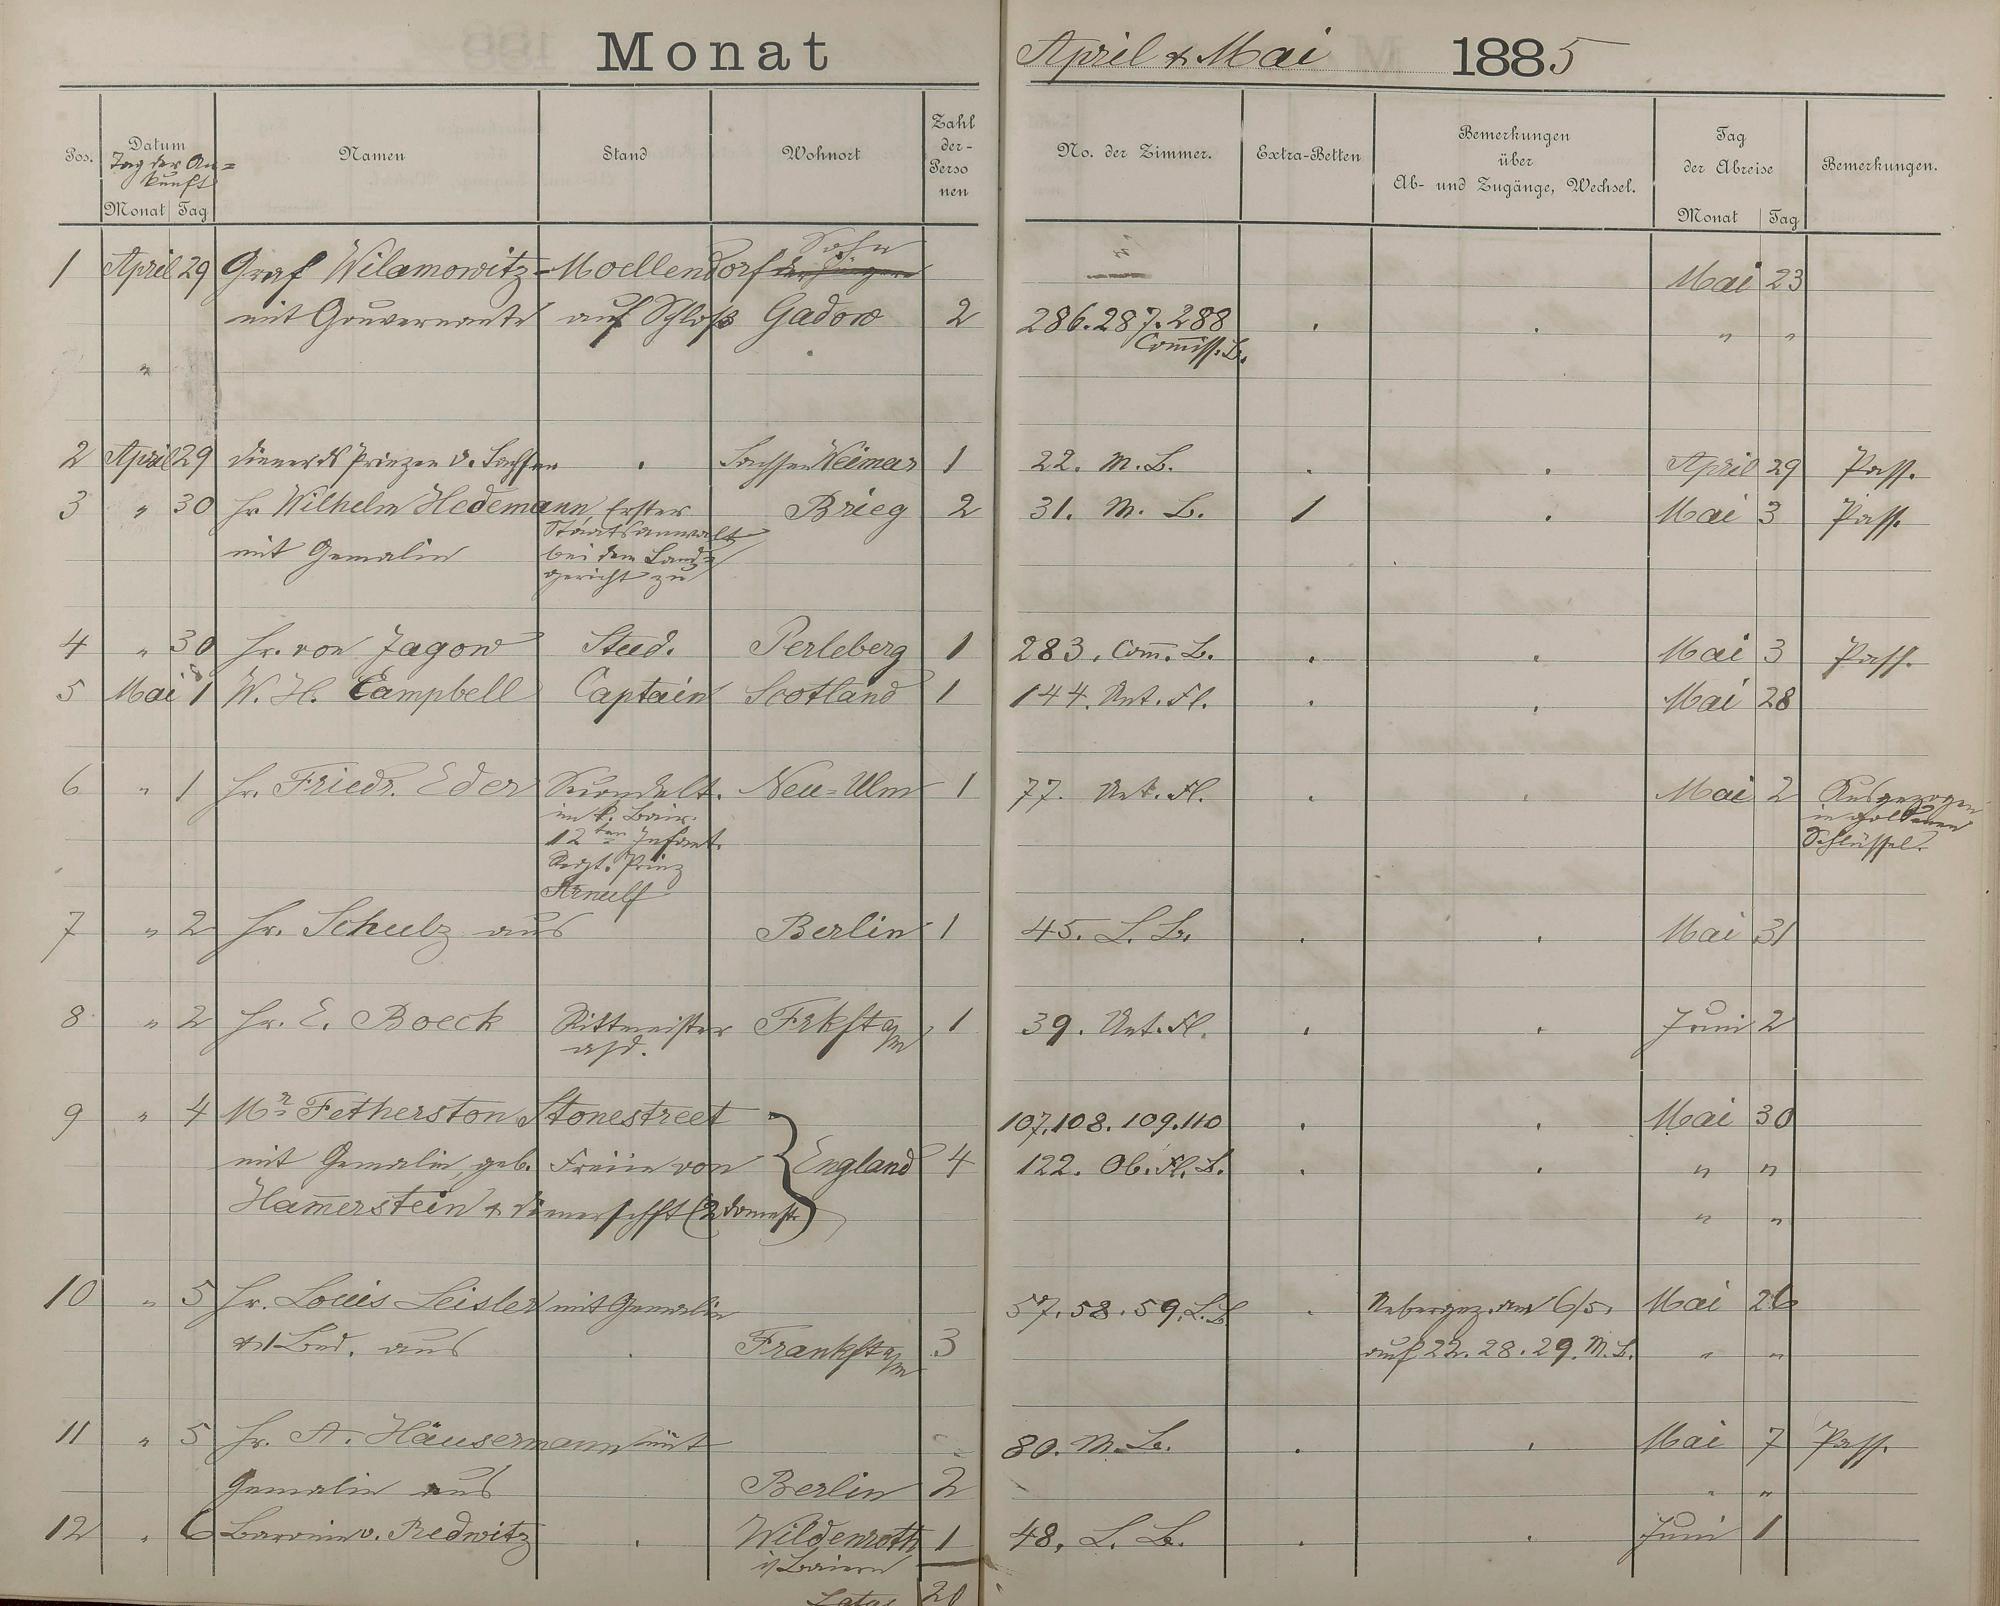 Monat April & Mai 1885
Pos. Datum Namen Stand Wohnort Zahl der Personen No. der Zimmer. Extra-Betten Bemerkungen über Ab- und Zugänge, Wechsel. Tag der Abreise Bemerkungen.
Tag der Ankunft
Monat Tag Monat Tag
Sohn
1 April 29 Graf Wilamowitz-Moellendorf Mai 23
mit Gouvernante auf Schloß Gadow 2 286. 287. 288 " "
Com̅iss. B.
"
2 April 29 Diener des Prinzen v. Sachsen Sachsen Weimar 1 22. M. B. April 29 Pass.
3 " 30 Hr. Wilhelm Hedemann Erster Brieg 2 31. M. B. 1 Mai 3 Pass.
Staatsanwalt
mit Gemalin bei dem Land=
gericht zu
4 " 30 Hr. von Jagow Stud. Perleberg 1 283. Com̅. B. Mai 3 Pass.
5 Mai 1 W. H. Campbell Captain Scotland 1 144. Unt. Fl. Mai 28
6 " 1 Hr. Friedr. Eder Secondelt. Neu=Ulm 1 77. Unt. Fl. Mai 2 Ausgezogen
im k. Bair. in goldenen
12ten Infant. Schlüssel.
Regt. Prinz
Arnulf
7 " 2 Hr. Schulz aus Berlin 1 45. L. B. Mai 31
8 " 2 Hr. E. Boeck Rittmeister Frkft a/m 1 39. Unt. Fl. Juni 2
a/d.
9 " 4 Mr. Fetherston Stonestreet 107. 108. 109. 110 Mai 30
mit Gemalin, geb. Freiin von England 4 122. Ob. Fl. B. " "
Ham̅erstein & Dienerschft (2 domest.) " "
10 " 5 Hr. Louis Leisler mit Gemalin 57. 58. 59. L. B. Uebergez. am 6/5. Mai 26
& 1 Bed. aus Frankft a/m 3 auf 22. 28. 29. M. B. " "
11 " 5 Hr. A. Häusermann mit 80. M. B. Mai 7 Pass.
Gemalin aus Berlin 2 " "
12 " 6 Baronin v. Redwitz Wildenroth 1 48. L. B. Juni 1
i/ Baiern
Latus 20